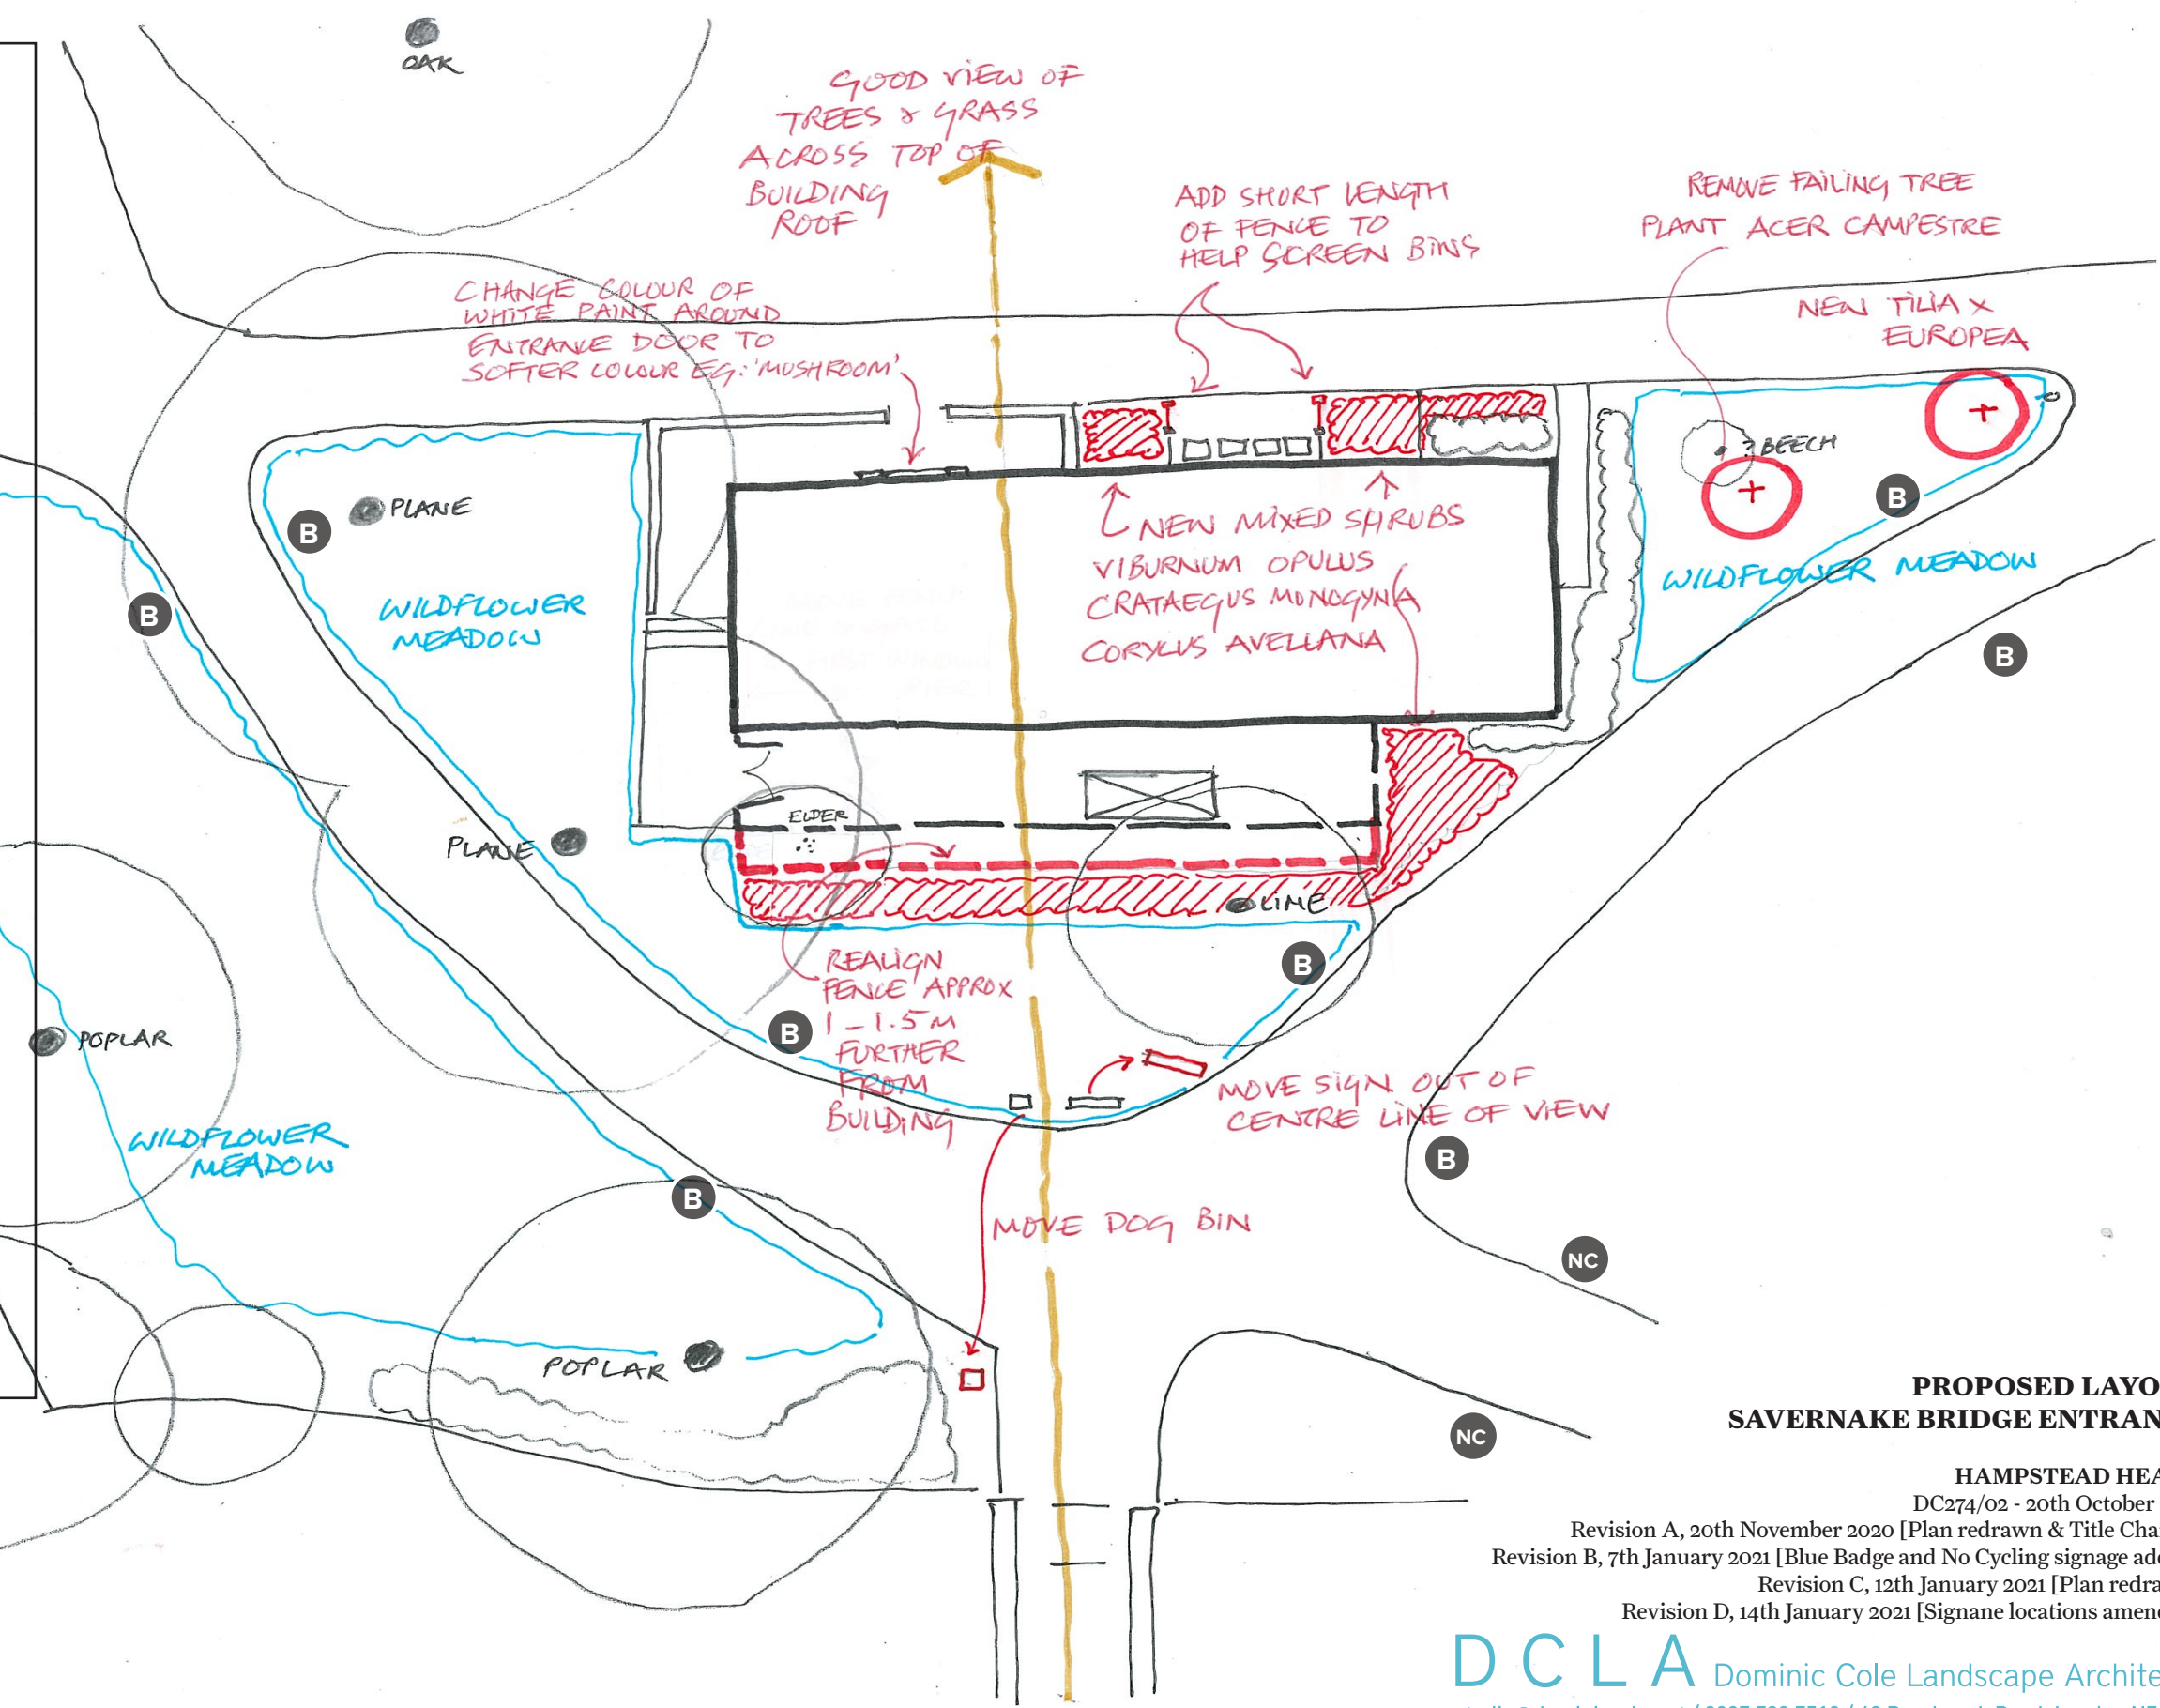 OAK
GOOD VIEW OF
TREES & GRASS
ACROSS TOP OF
BUILDING
ROOF
ADD SHORT LENGTH
OF FENCE TO
HELP SCREEN BINS
REMOVE FAILING TREE
PLANT ACER CAMPESTRE
CHANGE COLOUR OF
WHITE PAINT AROUND
ENTRANCE DOOR TO
SOFTER COLOUR EG: 'MUSHROOM'
NEW TILIA X
EUROPEA
? BEECH
B
PLANE
B
B
WILDFLOWER
MEADOW
NEW MIXED SHRUBS
VIBURNUM OPULUS
CRATAEGUS MONOGYNA
CORYLUS AVELLANA
WILDFLOWER MEADOW
B
PLANE
ELDER
LIME
B
REALIGN
FENCE APPROX
1-1.5M
FURTHER
FROM
BUILDING
B
POPLAR
MOVE SIGN OUT OF
CENTRE LINE OF VIEW
WILDFLOWER
MEADOW
B
B
MOVE DOG BIN
NC
POPLAR
NC
PROPOSED LAYO
SAVERNAKE BRIDGE ENTRAN
HAMPSTEAD HEA
DC274/02 - 20th October
Revision A, 20th November 2020 [Plan redrawn & Title Cha
Revision B, 7th January 2021 [Blue Badge and No Cycling signage ad
Revision C, 12th January 2021 [Plan redra
Revision D, 14th January 2021 [Signane locations amen
DCLA Dominic Cole Landscape Archite